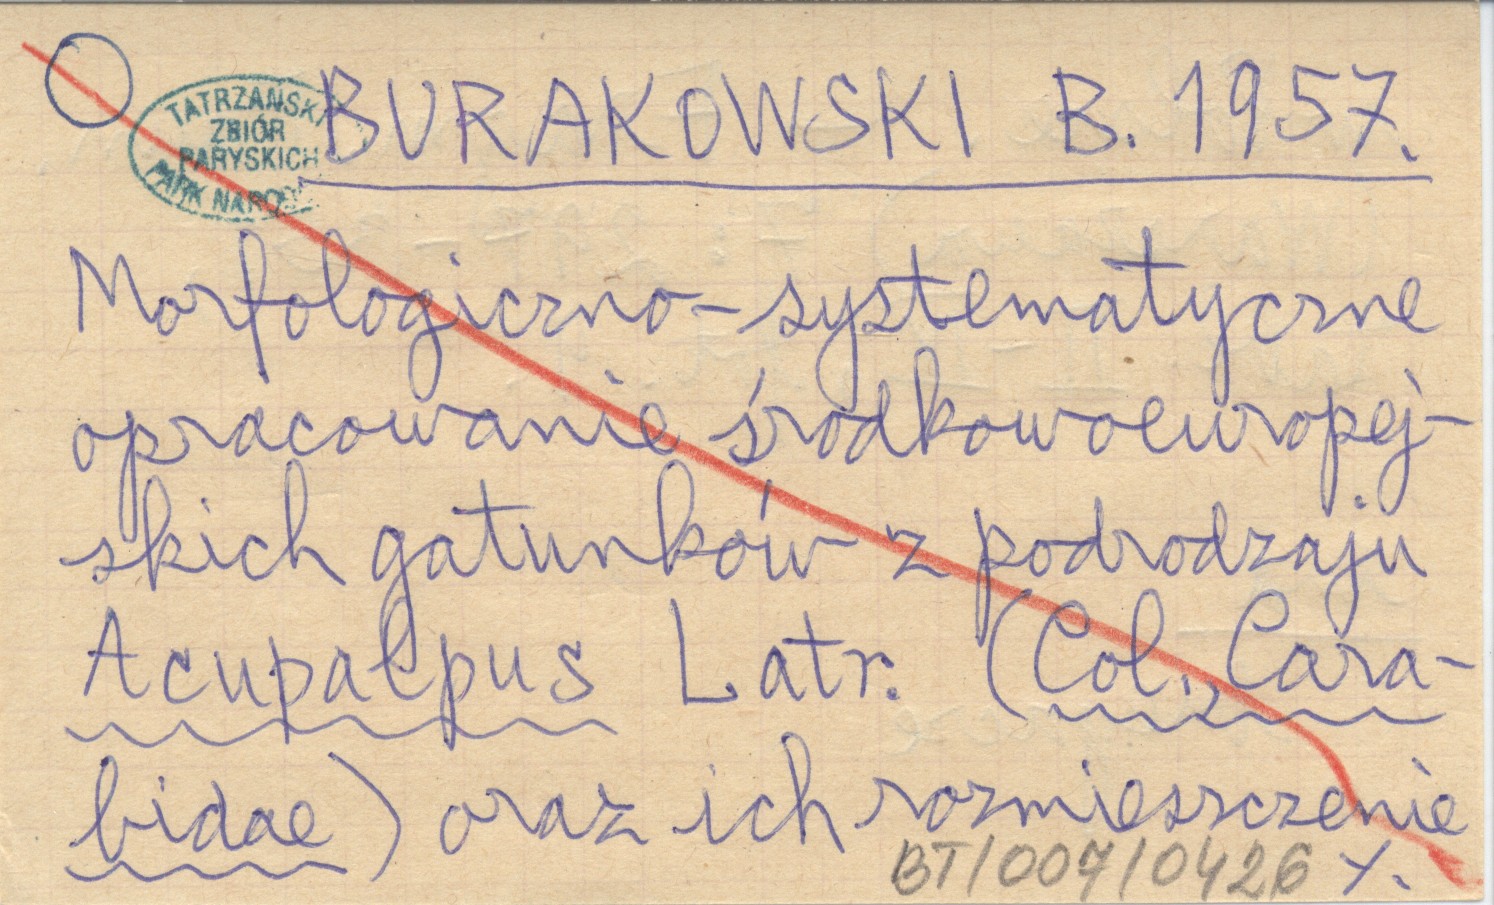 TATRZAŃSKI
ZBIÓR
PARYSKICH
PARK NAROD
BURAKOWSKI B. 1957.
Morfologiczno-systematyczne
opracowanie środkowoeuropej-
skich gatunków z podrodzaju
Acupalpus Latr. (Col., Cara-
bidae) oraz ich rozmieszczenie
BT/007/0426 Y.